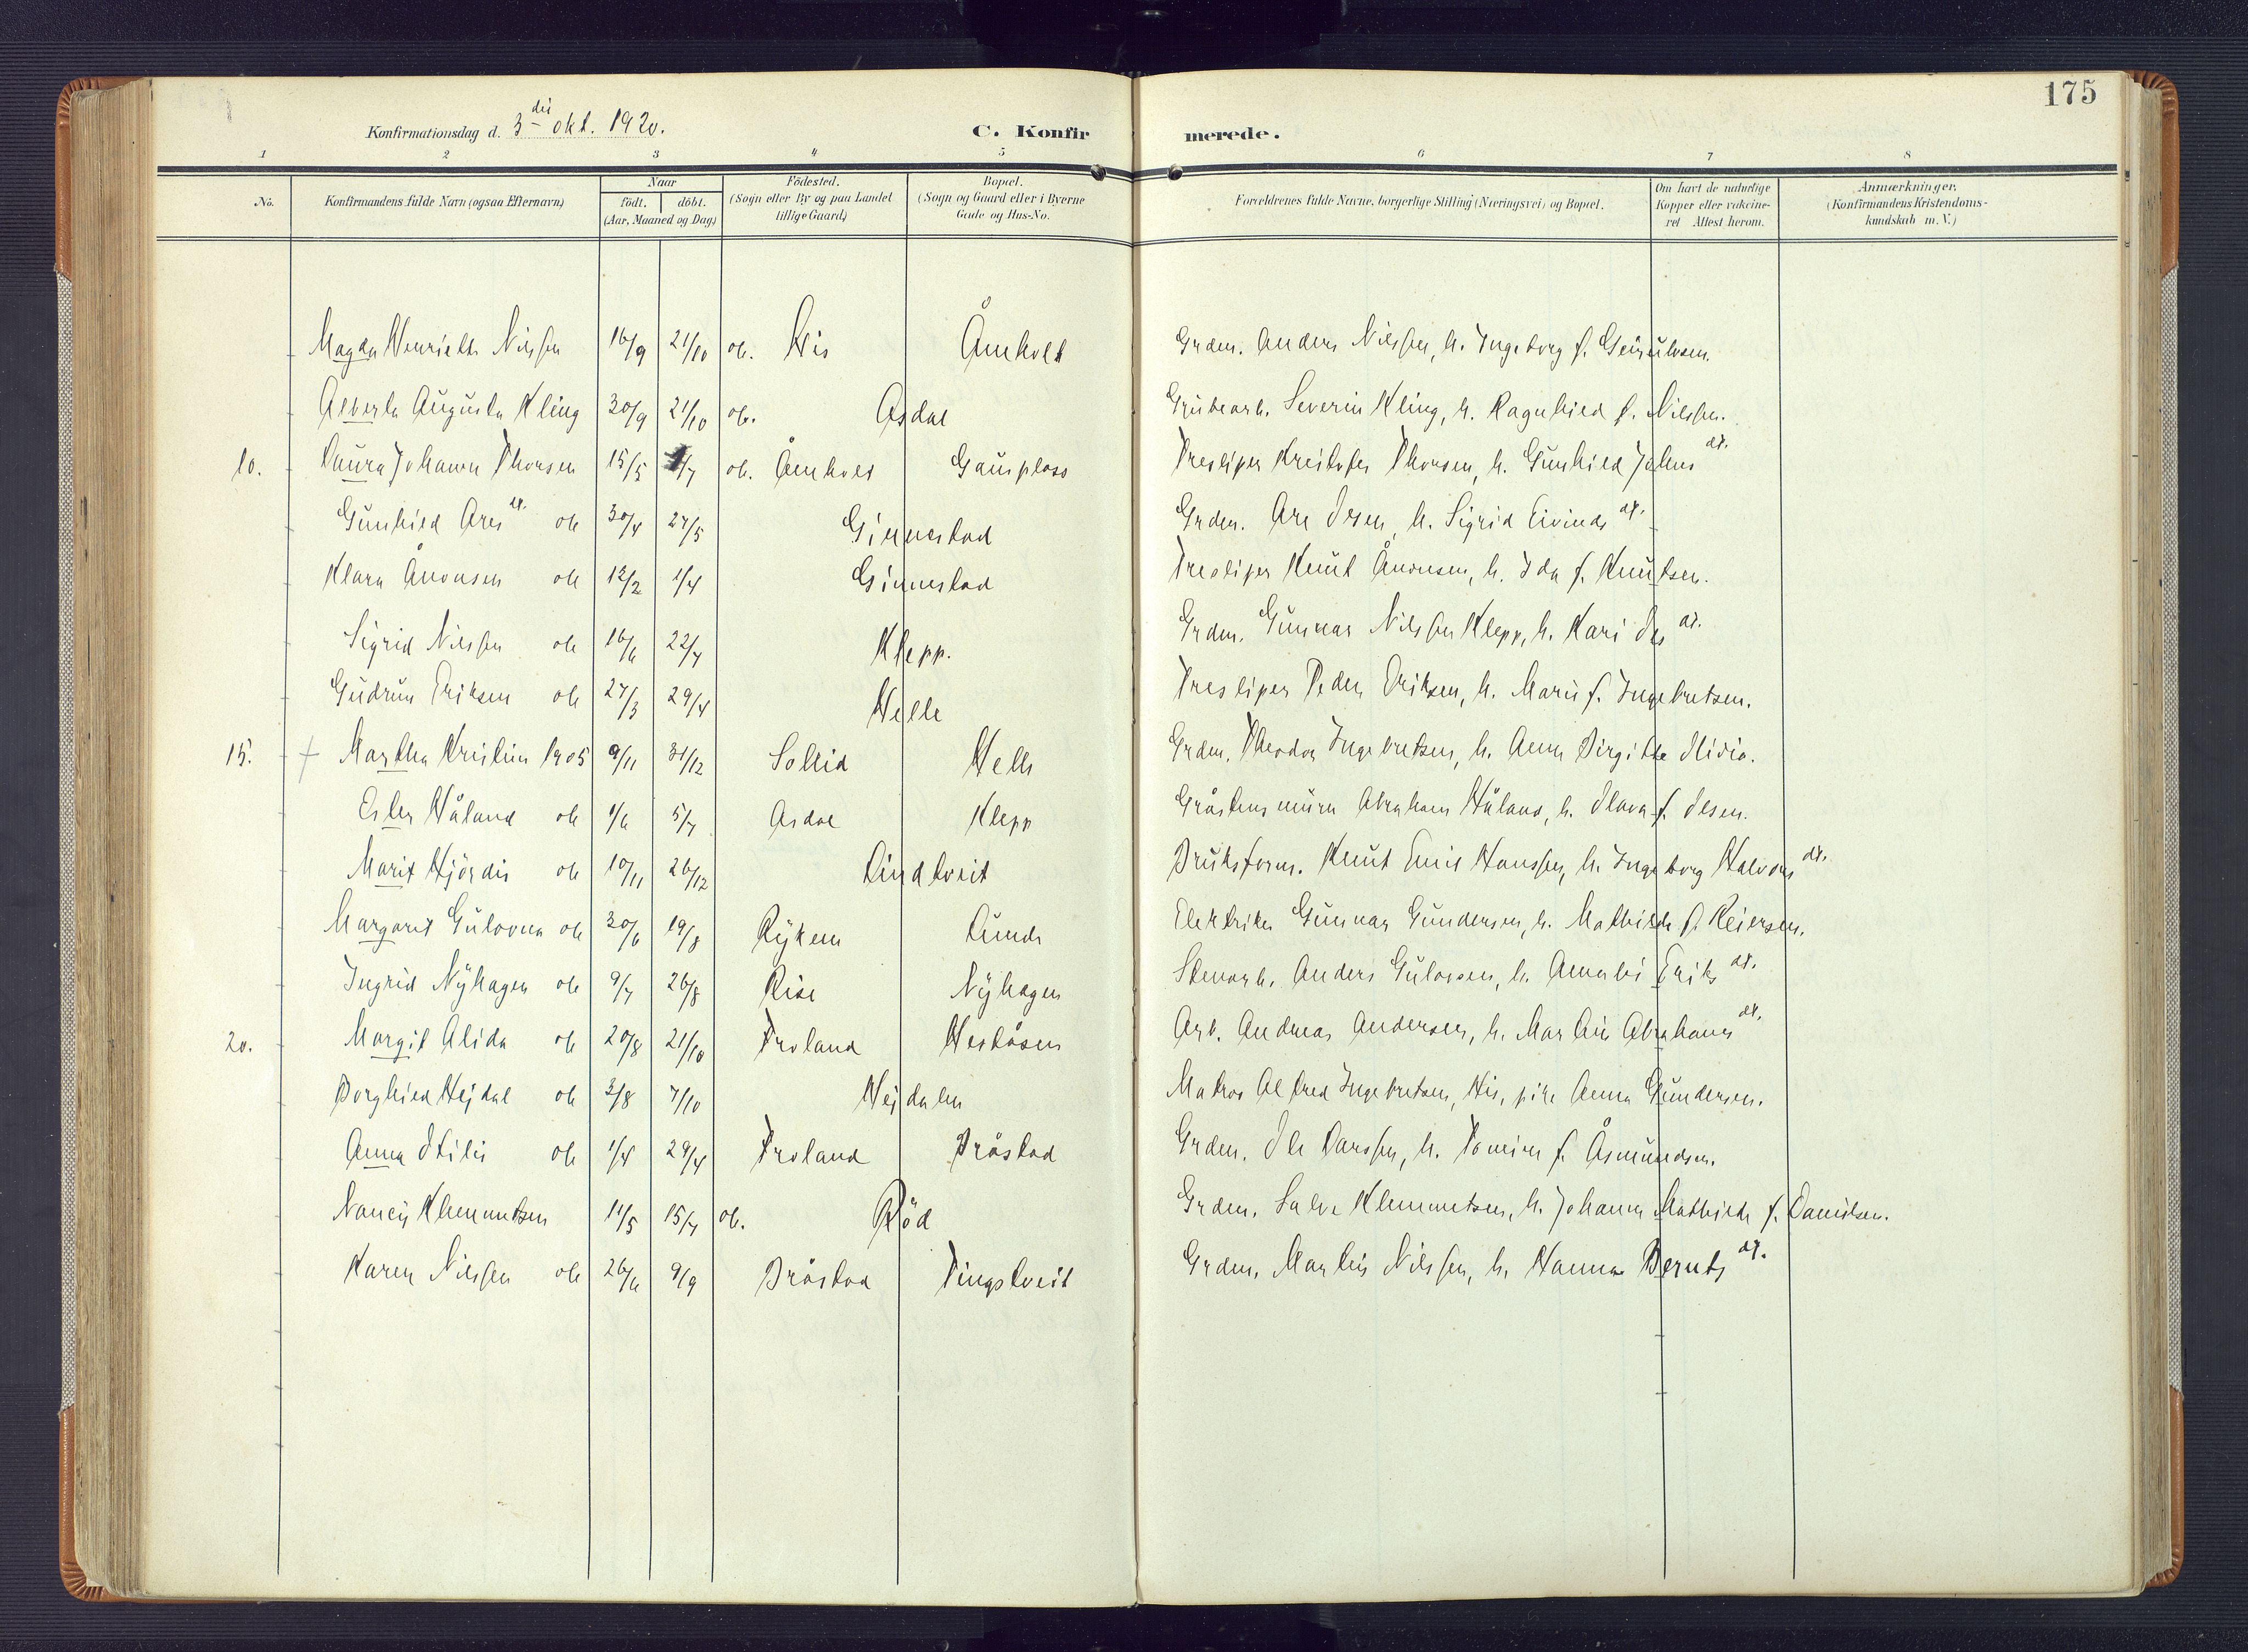 175
Konfirmationsdag d. 3die okt. 1920.
C. Konfirmerede.
1 2 3 4 5 6 7 8
No.
Konfirmandens fulde Navn (ogsaa Efternavn)
Naar
födt. döbt.
(Aar, Maaned og Dag)
Födested.
(Sogn eller By og paa Landet
tillige Gaard)
Bopæl.
(Sogn og Gaard eller i Byerne
Gade og Hus-No.
Forældrenes fulde Navne, borgerlige Stilling (Næringsvei) og Bopæl.
Om havt de naturlige
Kopper eller vakcine-
ret Attest herom.
Anmærkninger.
(Konfirmandens Kristendoms-
kundskab m. V.)
Magda Henriette Nilssen 16/9 21/10 ob. His Åmholt Grdm. Anders Nilssen, h. Ingeborg f.
Alberta Augusta Kling 30/9 21/10 ob. Asdal Grubearb. Severin Kling, h. Ragnhild f. Nilssen.
10. Laura Johanne Thorsen 15/5 /7 ob. Åmholt Gausplass Træsliper Kristofer Thorsen, h. Gunhild Johns dt.
Gunhild Ares dt. ob 30/4 27/5 Ginnestad Grdm. Are Olsen, h. Sigrid Eivinds dt.
Klara Ånonsen ob 12/2 1/4 Ginnestad Træsliper Knut Ånonsen, h. Ida f. Knutsen.
Sigrid Nilssen ob 16/6 22/7 Klepp. Grdm. Gunnar Nilssen Klepp, h. Kari Ols dt.
Gudrun Eriksen ob 27/3 29/4 Helle Træsliper Peder Eriksen, h. Marie f. Ingebretsen.
15. + Martha Kristine 1905 9/11 31/12 Sollid Helle Grdm. Theodor Ingebretsen, h. Anna Birgitte Olivia.
Ester Håland ob 1/6 5/7 Asdal Klepp Gråstensmurer Abraham Håland, h. Olava f. Olsen.
Marit Hjördis ob 10/11 26/12 Lindtveit Bruksform. Knut Emil Hanssen, h. Ingeborg Halvors dt.
Margarit Gulovna ob 30/6 19/8 Rykene Lunde Elektriker Gunnar Gundersen, h. Mathilde f. Reiersen.
Ingrid Nyhagen ob 9/7 26/8 Rise Nyhagen Stenarb. Anders Gulovsen, h. Eriks dt.
20. Margit Alida ob 20/8 21/10 Froland Heståsen Arb. Andreas Andersen, h. Marthe Abrahams dt.
Borghild Hejdal ob 3/8 7/10 Hejdalen Matros Alfred Ingebretsen, His, pike Anna Gundersen.
Anna Otilie ob 1/4 29/4 Froland Bråstad Grdm. Ole Larssen, h. Tomine f. Åsmundsen.
Nancy Klemmetsen 11/5 15/7 ob. Röd Grdm. Salve Klemmetsen, h. Johanne Mathilde f. Danielsen.
Karen Nilssen ob 26/6 9/9 Bråstad Tingstveit Grdm. Martin Nilssen, h. Hanna Bernts dt.